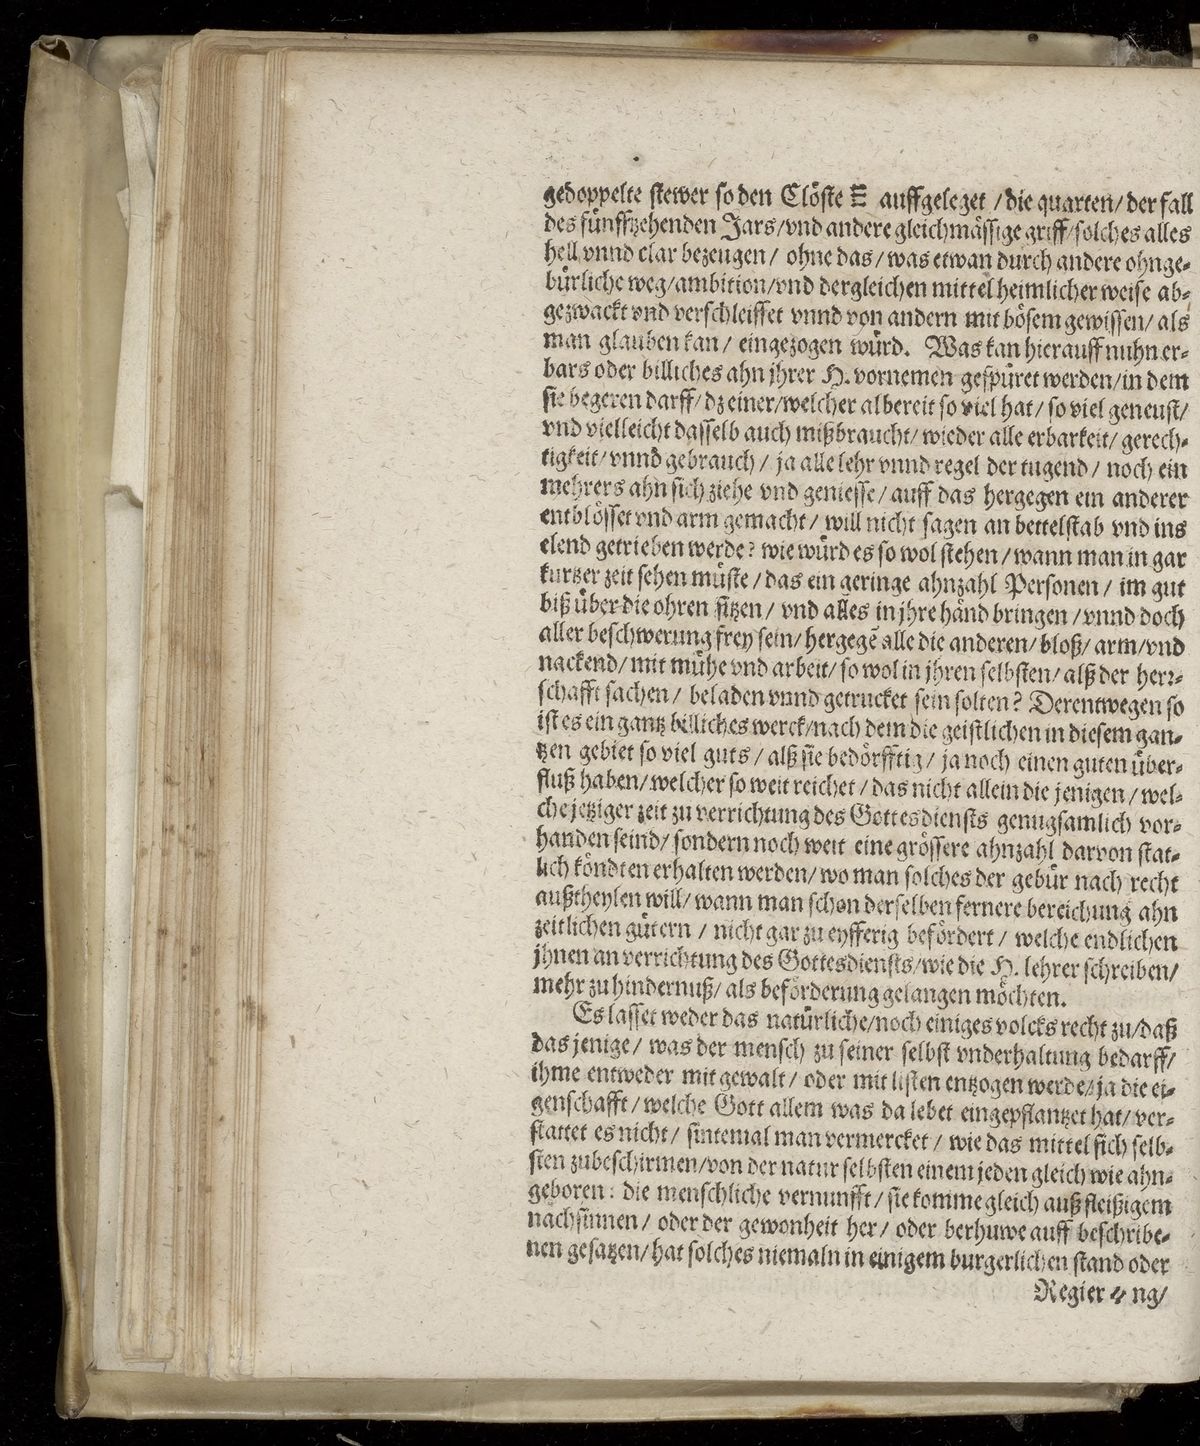 gedoppelte stewer so den Clöste auffgeleget / die quarten / der fall
des fünfftzehenden Jars / vnd andere gleichmässige griff / solches alles
hell vnnd clar bezeugen / ohne das / was etwan durch andere ohnge⸗
bürliche weg / ambition / vnd dergleichen mittel heimlicher weise ab⸗
gezwackt vnd verschleisset vnnd von andern mit bösem gewissen / als
man glauben kan / eingezogen würd. Was kan hierauff nuhn er⸗
bars oder billiches ahn jhrer H. vornemen gespüret werden / in dem
sie begeren darff / dz einer / welcher albereit so viel hat / so viel geneust /
vnd vielleicht dasselb auch mißbraucht / wieder alle erbarkeit / gerech⸗
tigkeit / vnnd gebrauch / ja alle lehr vnnd regel der tugend / noch ein
mehrers ahn sich ziehe vnd geniesse / auff das hergegen ein anderer
entblösset vnd arm gemacht / will nicht sagen an bettelstab vnd ins
elend getrieben werde? wie würd es so wol stehen / wann man in gar
kurtzer zeit sehen müste / das ein geringe ahnzahl Personen / im gut
biß über die ohren sitzen / vnd alles in jhre händ bringen / vnnd doch
aller beschwerung frey sein / hergegē alle die anderen / bloß / arm / vnd
nackend / mit mühe vnd arbeit / so wol in jhren selbsten / alß der herr⸗
schafft sachen / beladen vnnd getrucket sein solten? Derentwegen so
ist es ein gantz billiches werck / nach dem die geistlichen in diesem gan⸗
tzen gebiet so viel guts / alß sie bedörfftig / ja noch einen guten über⸗
fluß haben / welcher so weit reichet / das nicht allein die jenigen / wel⸗
che jetziger zeit zu verrichtung des Gottesdiensts genugsamlich vor⸗
handen seind / sondern noch weit eine grössere ahnzahl darvon stat⸗
lich köndten erhalten werden / wo man solches der gebür nach recht
außtheylen will / wann man schon derselben fernere bereichung ahn
zeitlichen gütern / nicht gar zu eyfferig befördert / welche endlichen
jhnen an verrichtung des Gottesdiensts / wie die H. lehrer schreiben /
mehr zu hindernuß / als beförderung gelangen möchten.
Es lasset weder das natürliche / noch einiges volcks recht zu / daß
das jenige / was der mensch zu seiner selbst vnderhaltung bedarff /
ihme entweder mit gewalt / oder mit listen entzogen werde / ja die ei⸗
genschafft / welche Gott allem was da lebet eingepflantzet hat / ver⸗
stattet es nicht / sintemal man vermercket / wie das mittel sich selb⸗
sten zubeschirmen / von der natur selbsten einem jeden gleich wie ahn⸗
geboren: die menschliche vernunfft / sie komme gleich auß fleißigem
nachsinnen / oder der gewonheit her / oder berhuwe auff beschribe⸗
nen gesatzen / hat solches niemaln in einigem burgerlichen stand oder
Regierung /